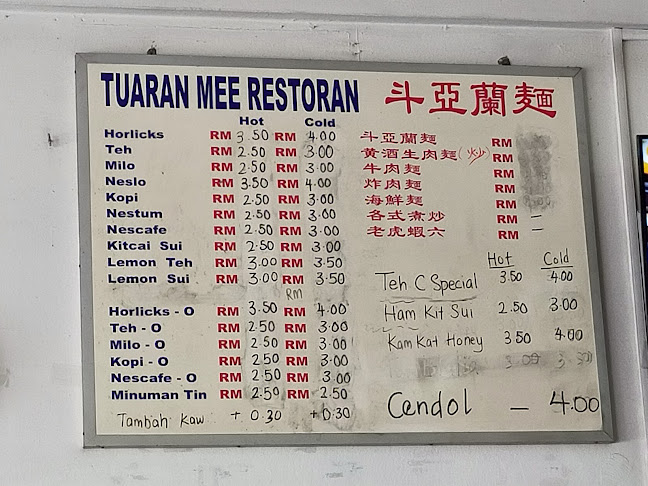 TUARAN MEE RESTORAN 斗亞蘭麵
Hot Cold
Horlicks RM 3.50 RM 4.00
Teh RM 2.50 RM 3.00
Milo RM 2.50 RM 3.00
Neslo RM 3.50 RM 4.00
Kopi RM 2.50 RM 3.00
Nestum RM 2.50 RM 3.00
Nescafe RM 2.50 RM 3.00
Kitcai Sui RM 2.50 RM 3.00
Lemon Teh RM 3.00 RM 3.50
Lemon Sui RM 3.00 RM 3.50
Rm
Horlicks - O RM 3.50 RM 4.00
Teh - O RM 2.50 RM 3.00
Milo - O RM 2.50 RM 3.00
Kopi - O RM 2.50 RM 3.00
Nescafe - O RM 2.50 RM 3.00
Minuman Tin RM 2.50 RM 2.50
Tambah Kaw + 0.30 +0.30
斗亞蘭麵 RM
黃酒生肉麵(炒) RM
牛肉麵 RM
炸肉麵 RM
海鮮麵 RM
各式煮炒 RM –
老虎蝦六 RM –
Hot Cold
Teh C Special 3.50 4.00
Ham Kit Sui 2.50 3.00
Kam Kat Honey 3.50 4.00
3.00 3.50
Cendol — 4.00